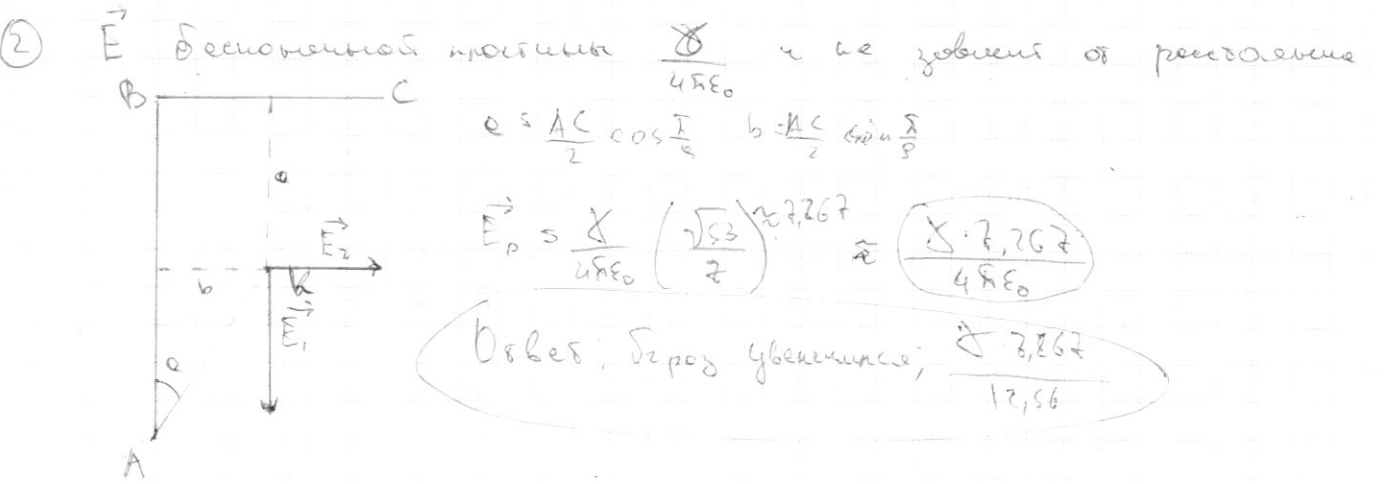 ② E⃗ бесконечной пластины γ/4πε₀ и не зависит от расстояния
B C
a = AC/2 cos π/8 b = AC/2 sin π/8
a
E⃗₂
E⃗ₚ = γ/4πε₀ (√53/7) ≈ 7,267 ≈ γ·7,267/4πε₀
b
E⃗₁
Ответ: раз увеличился; γ·7,267/12,56
A